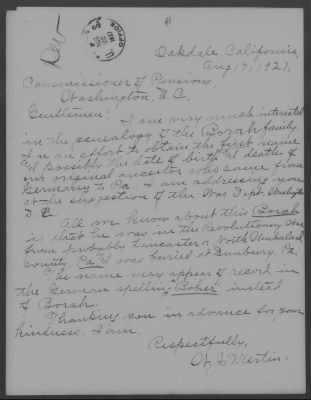 Oakdale, California,
Aug 17, 1927.
Commissioner of Pensions,
Washington, D.C.
Gentlemen: I am very much interested
in the genealogy of the Borah family
In an effort to obtain the first name
& if possible the date of birth & death of
our original ancestor who came from
Germany to Pa. I am addressing you
at the suggestion of the War Dept. Washington
D.C.
All we know about this Borah
is that he was in the Revolutionary War
from probably Lancaster or Northumberland
County, Pa & was buried at Sunbury, Pa.
The name may appear of record in
the German spelling "Boher" instead
of Borah.
Thanking you in advance for your
kindness. I am
Respectfully,
W. J. Martin.